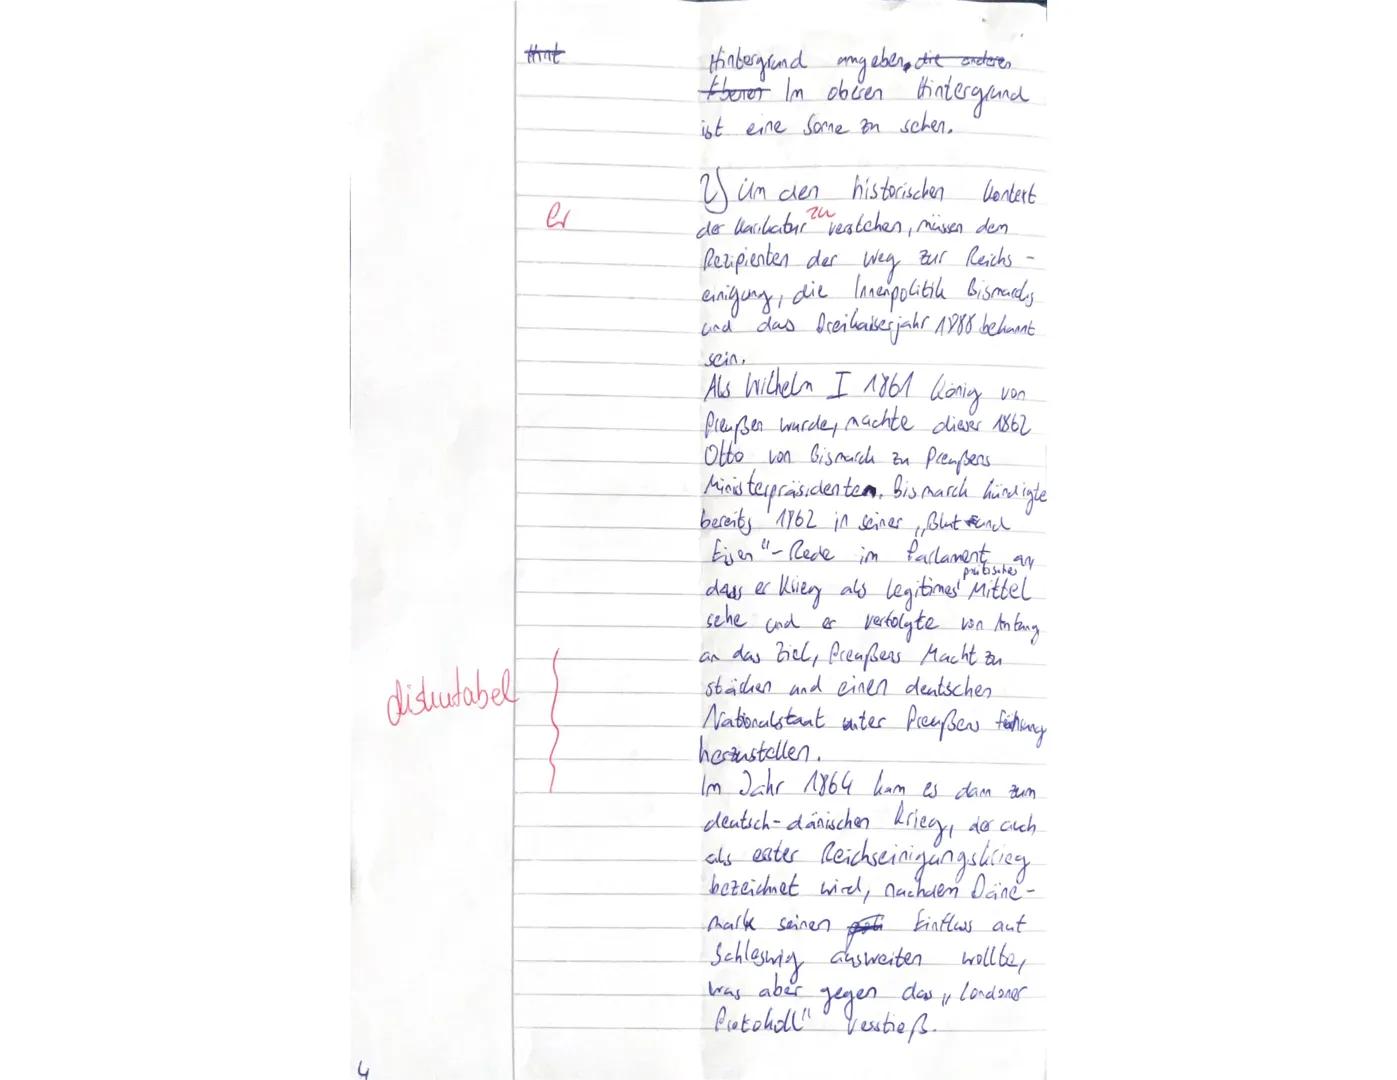 Hint
Hintergrund angeben. die anderen
Ebenen Im oberen Hintergrund
ist eine Sonne zu sehen.
2) Um den historischen Kontext
Er
zu
der Karikatur verstehen, müssen dem
Rezipienten der Weg zur Reichs-
einigung, die Innenpolitik Bismarcks
und das Dreikaiserjahr 1888 bekannt
sein.
Als Wilhelm I 1861 König von
Preußen wurde, machte dieser 1862
Otto von Bismarck zu Preußens
Ministerpräsidenten. Bismarck kündigte
bereits 1862 in seiner „Blut und
Eisen"-Rede im Parlament an
politisches
dass er Krieg als legitimes Mittel
sehe und er verfolgte von Anfang
an das Ziel, Preußens Macht zu
diskutabel
stärken und einen deutschen
Nationalstaat unter Preußens Führung
herzustellen.
Im Jahr 1864 kam es dann zum
deutsch-dänischen Krieg, der auch
als erster Reichseinigungskrieg
bezeichnet wird, nachdem Däne-
mark seinen Einfluss auf
Schleswig ausweiten wollte,
was aber gegen das „Londoner
Protokoll" verstieß.
4